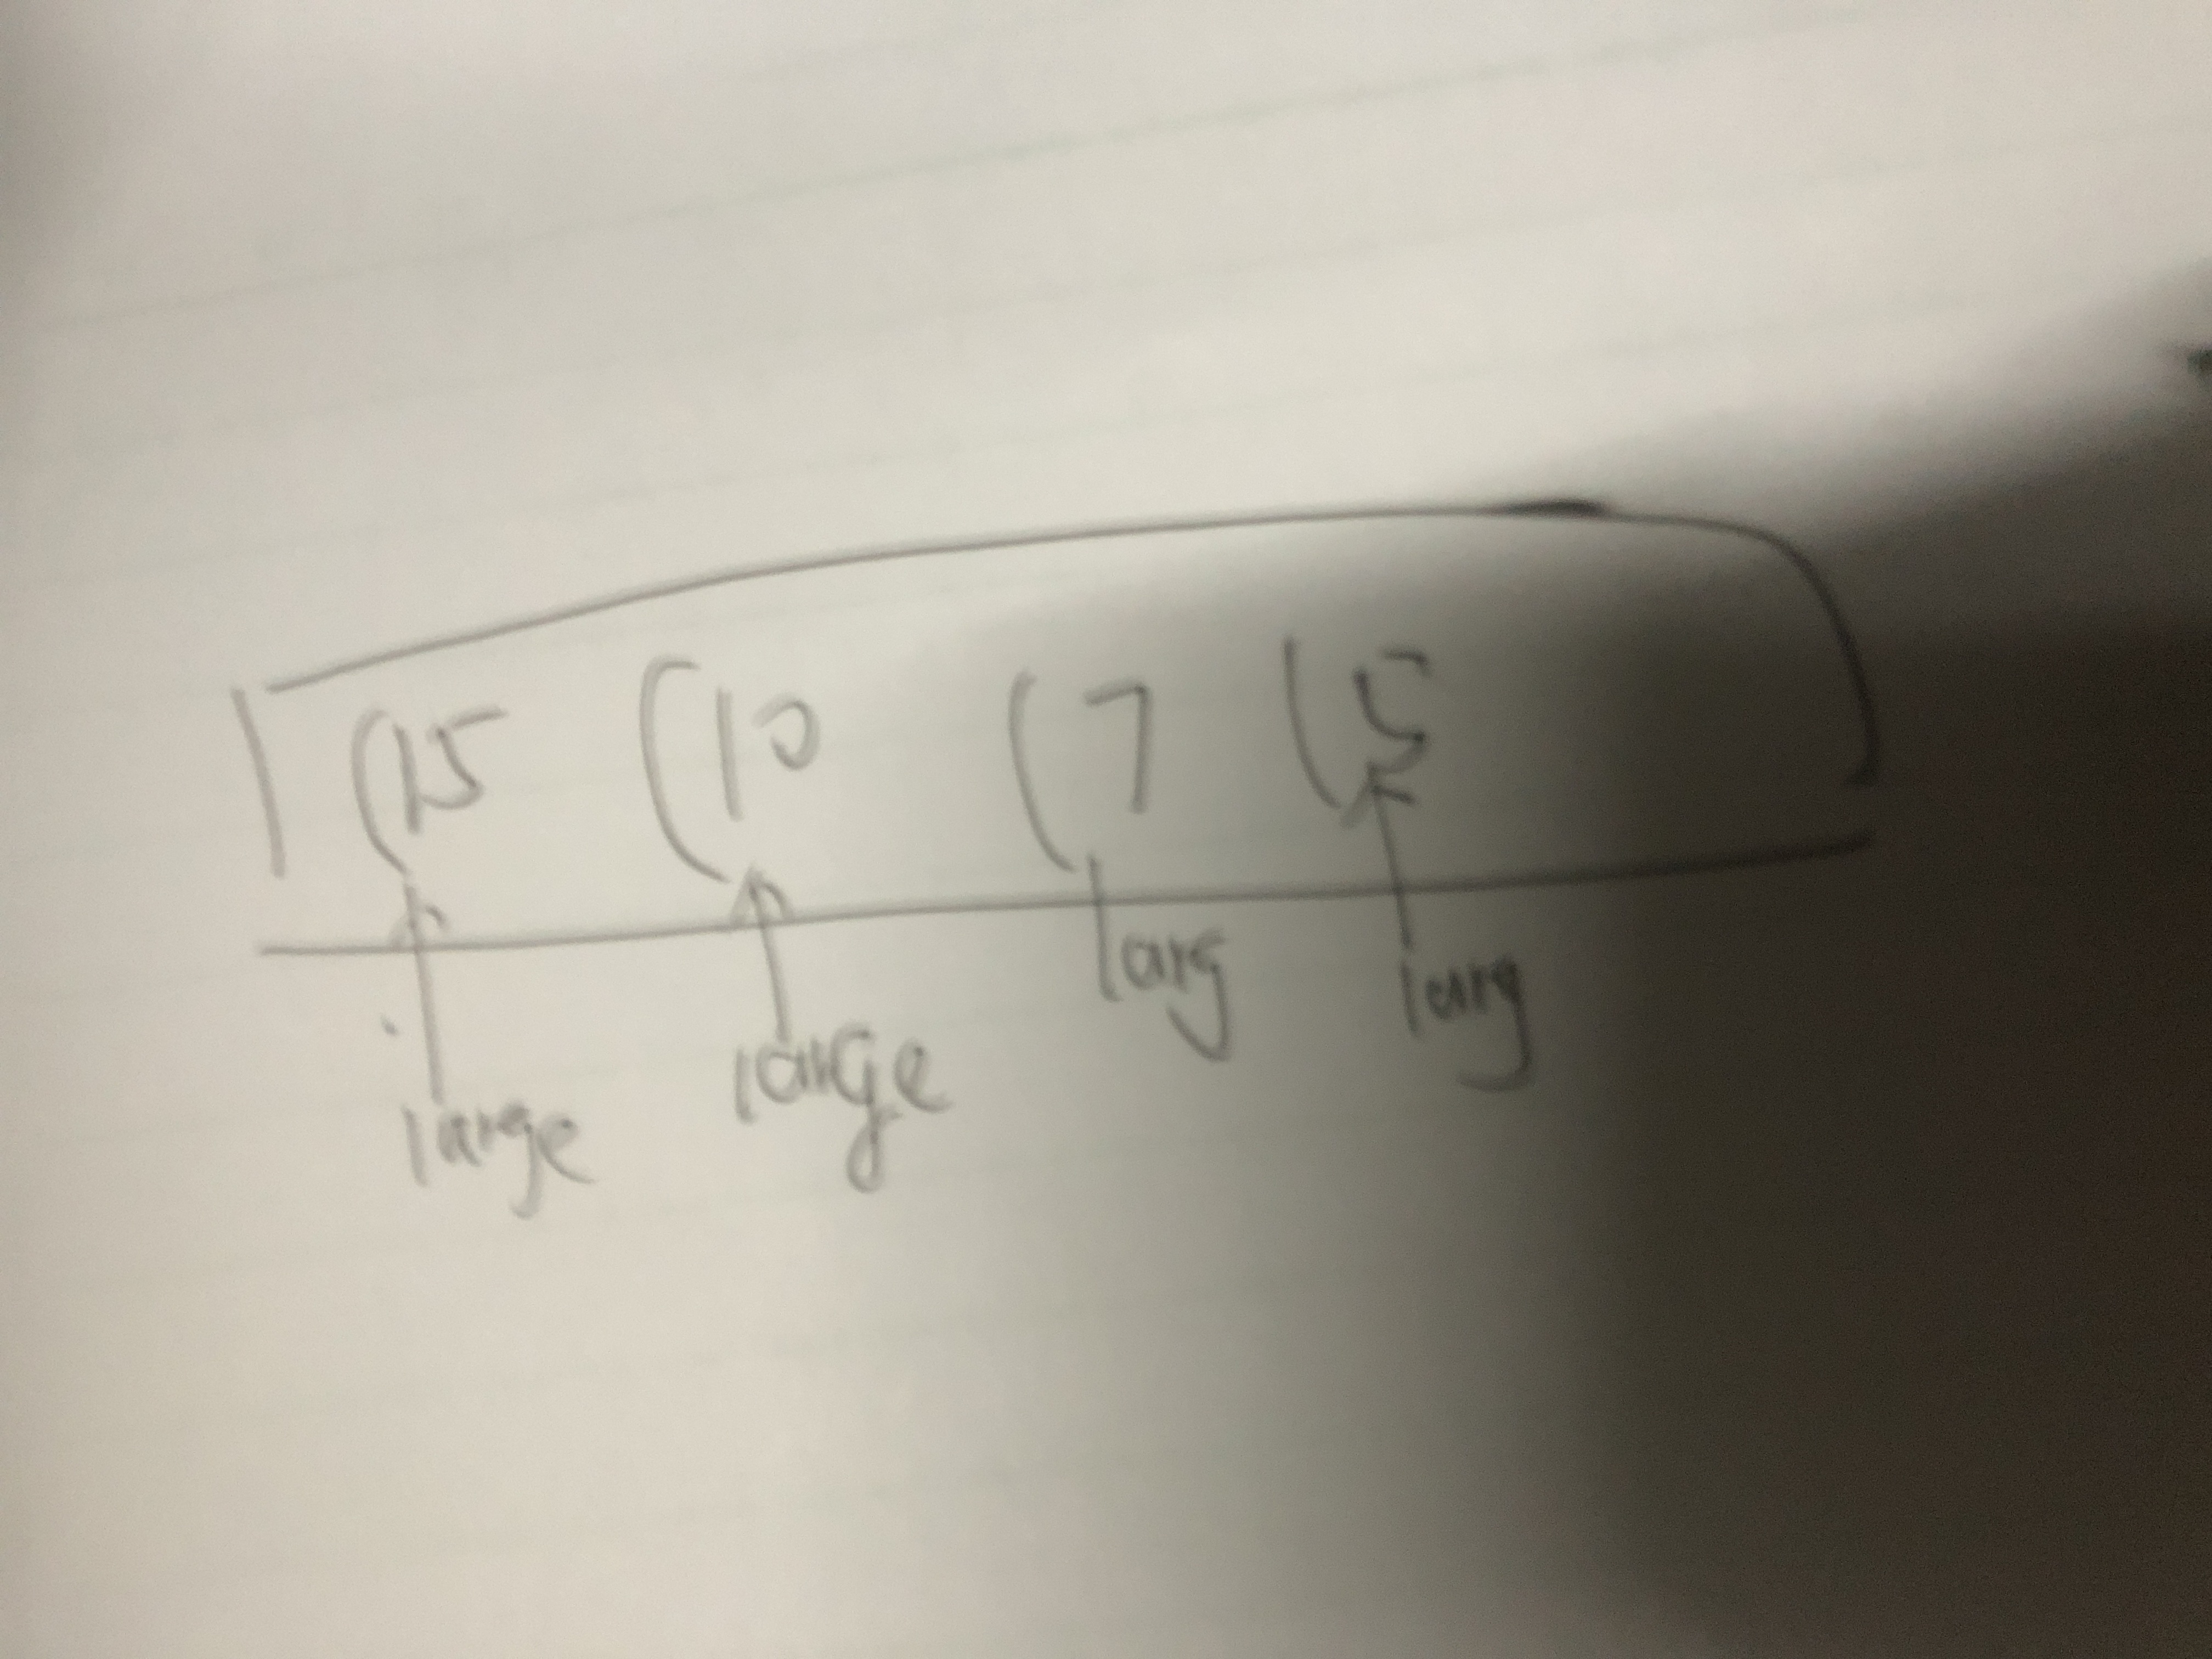 | (15 (10 (7 (5
large large larg larg